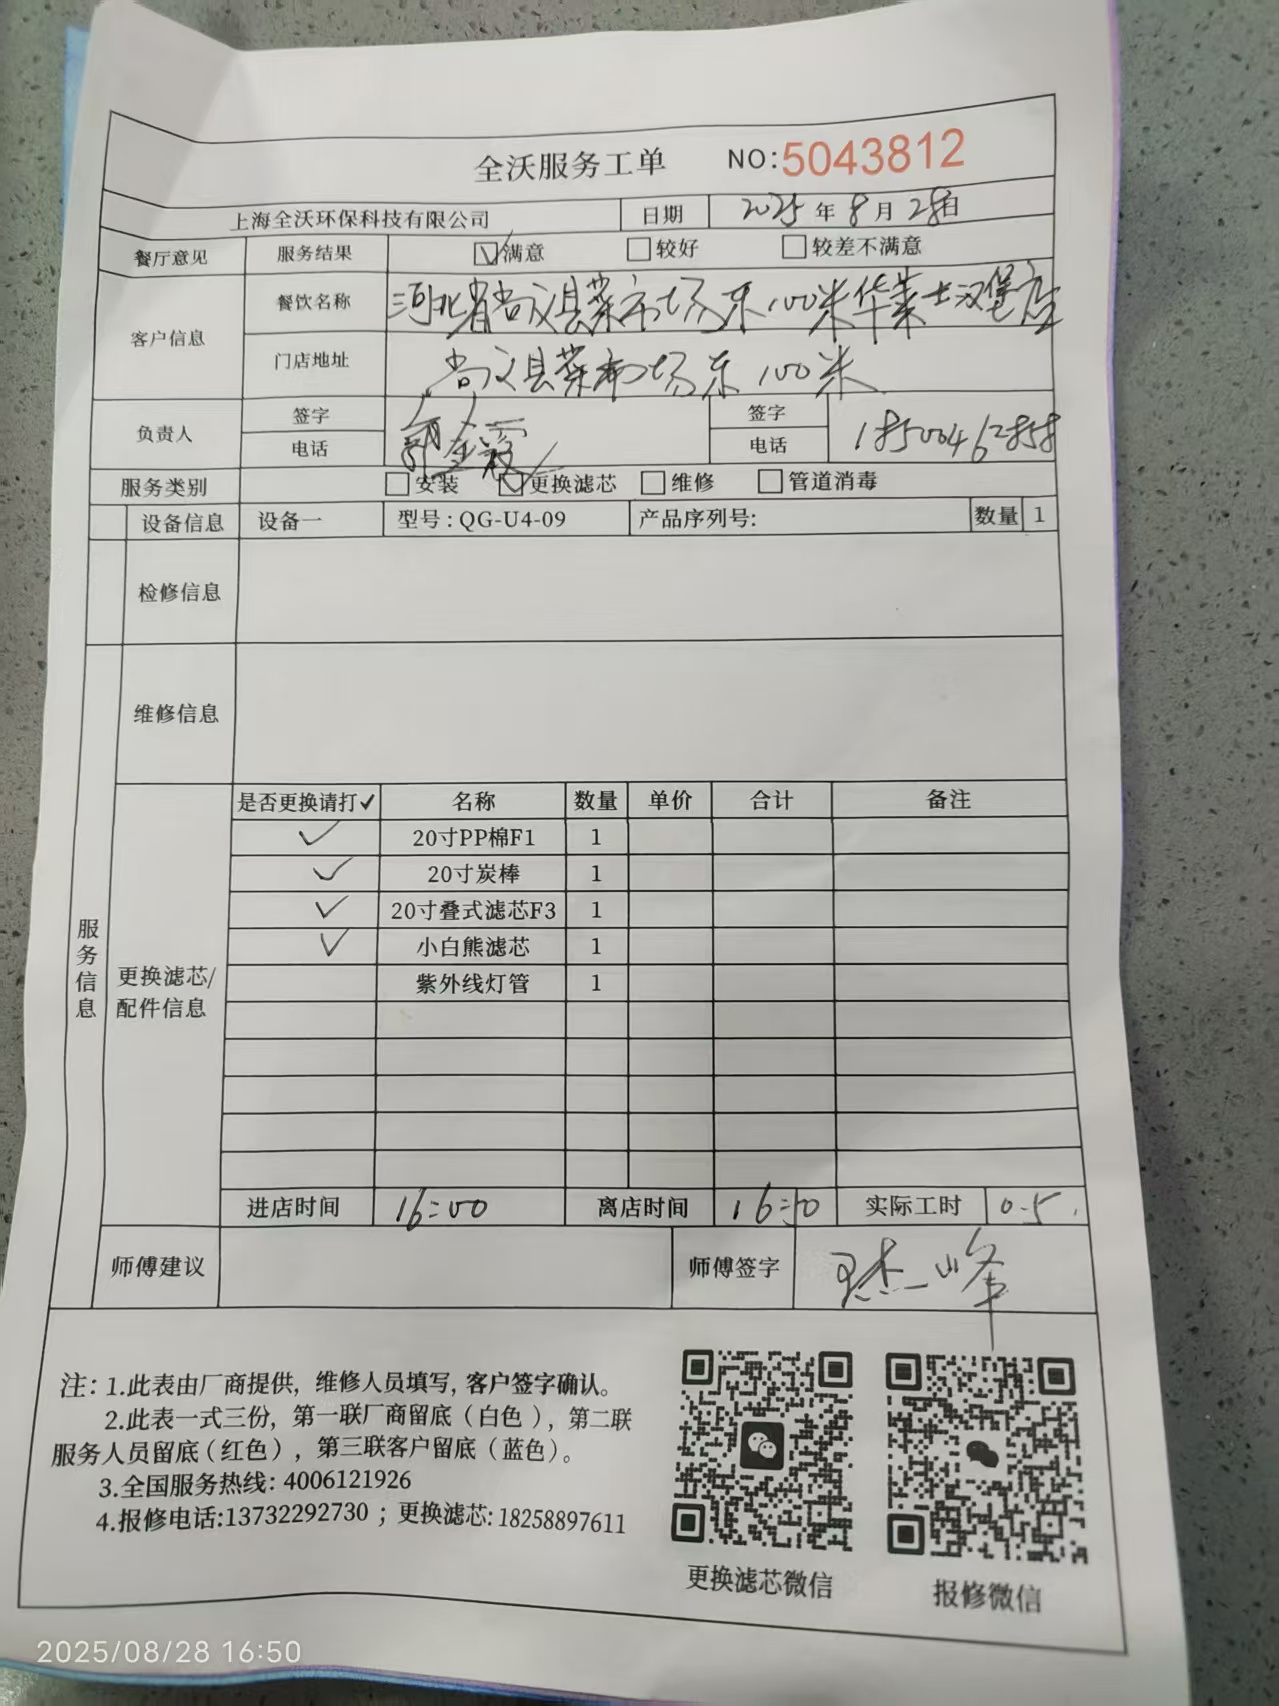 全沃服务工单 NO:5043812
上海全沃环保科技有限公司 日期 2025年8月28日
餐厅意见 服务结果 满意 较好 较差不满意
客户信息 餐饮名称 河北省尚义县菜市场东100米华莱士汉堡店
门店地址 尚义县菜市场东100米
负责人 签字 签字
电话 郭金霞 电话 18500462858
服务类别 安装 更换滤芯 维修 管道消毒
设备信息 设备一 型号:QG-U4-09 产品序列号: 数量 1
检修信息
维修信息
服务信息
更换滤芯/配件信息
是否更换请打✓ 名称 数量 单价 合计 备注
✓ 20寸PP棉F1 1
✓ 20寸炭棒 1
✓ 20寸叠式滤芯F3 1
✓ 小白熊滤芯 1
紫外线灯管 1
进店时间 16:00 离店时间 16:50 实际工时 0.5
师傅建议 师傅签字
注：1.此表由厂商提供，维修人员填写，客户签字确认。
2.此表一式三份，第一联厂商留底（白色），第二联
服务人员留底（红色），第三联客户留底（蓝色）。
3.全国服务热线：4006121926
4.报修电话:13732292730；更换滤芯:18258897611
更换滤芯微信 报修微信
2025/08/28 16:50